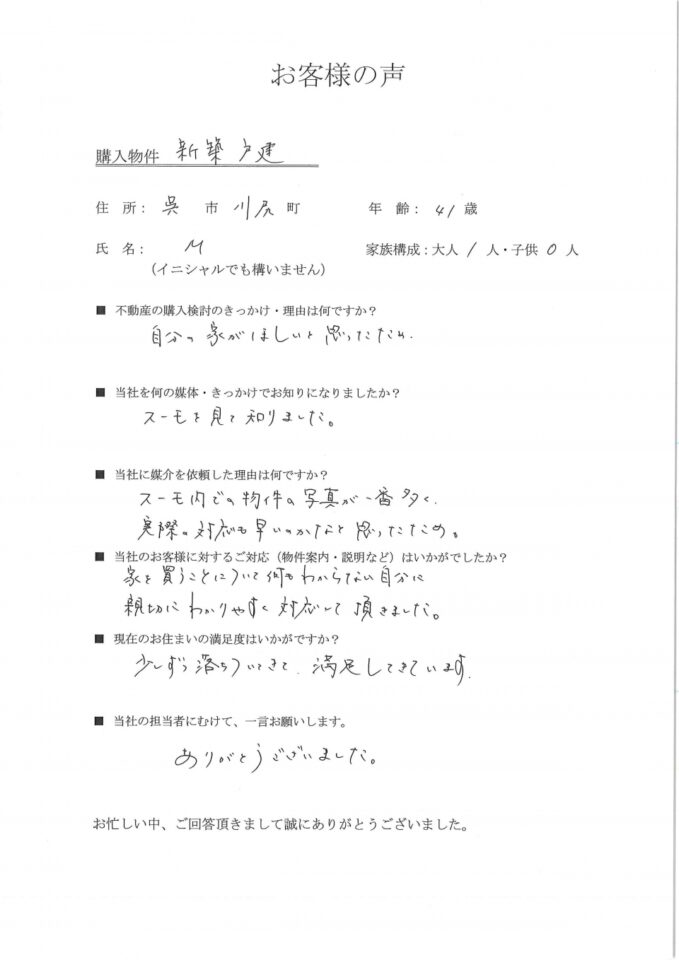 お客様の声
購入物件 新築戸建
住 所： 呉 市 川尻 町 年 齢： 41 歳
氏 名： M 家族構成：大人 1 人・子供 0 人
（イニシャルでも構いません）
■ 不動産の購入検討のきっかけ・理由は何ですか？
自分の家がほしいと思ったため.
■ 当社を何の媒体・きっかけでお知りになりましたか？
スーモを見て知りました。
■ 当社に媒介を依頼した理由は何ですか？
スーモ内での物件の写真が一番多く、
実際の対応も早いのかなと思ったため。
■ 当社のお客様に対するご対応（物件案内・説明など）はいかがでしたか？
家を買うことについて何もわからない自分に
親切にわかりやすく対応して頂きました。
■ 現在のお住まいの満足度はいかがですか？
少しずつ落ちついてきて、満足してきています.
■ 当社の担当者にむけて、一言お願いします。
ありがとうございました。
お忙しい中、ご回答頂きまして誠にありがとうございました。